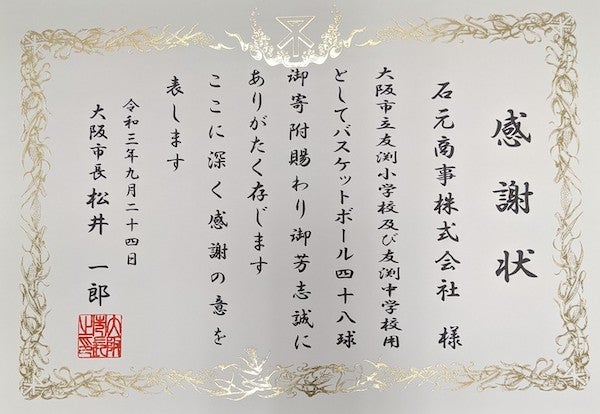 感謝状
石元商事株式会社 様
大阪市立友渕小学校及び友渕中学校用
としてバスケットボール四十八球
御寄附賜わり御芳志誠に
ありがたく存じます
ここに深く感謝の意を
表します
令和三年九月二十四日
大阪市長 松井 一郎